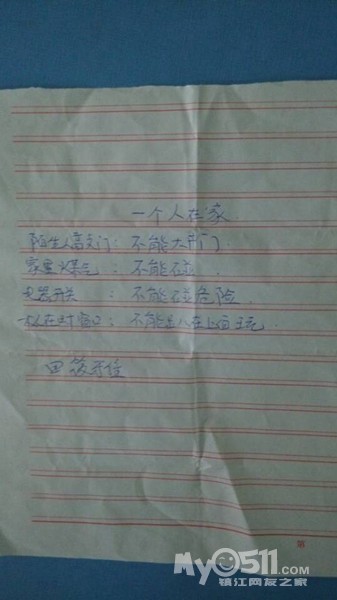 一个人在家
陌生人高文门：不能大开门
家里火煤气：不能碰
电器开关：不能碰危险
不在对窗口：不能趴在上面玩
田
第
My0511.com
镇江网友之家